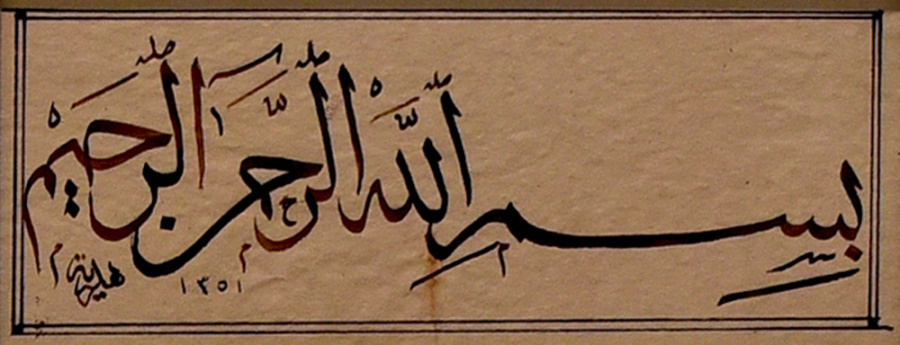 بِسْمِ اللَّهِ الرَّحْمَنِ الرَّحِيمِ
١٣٥١